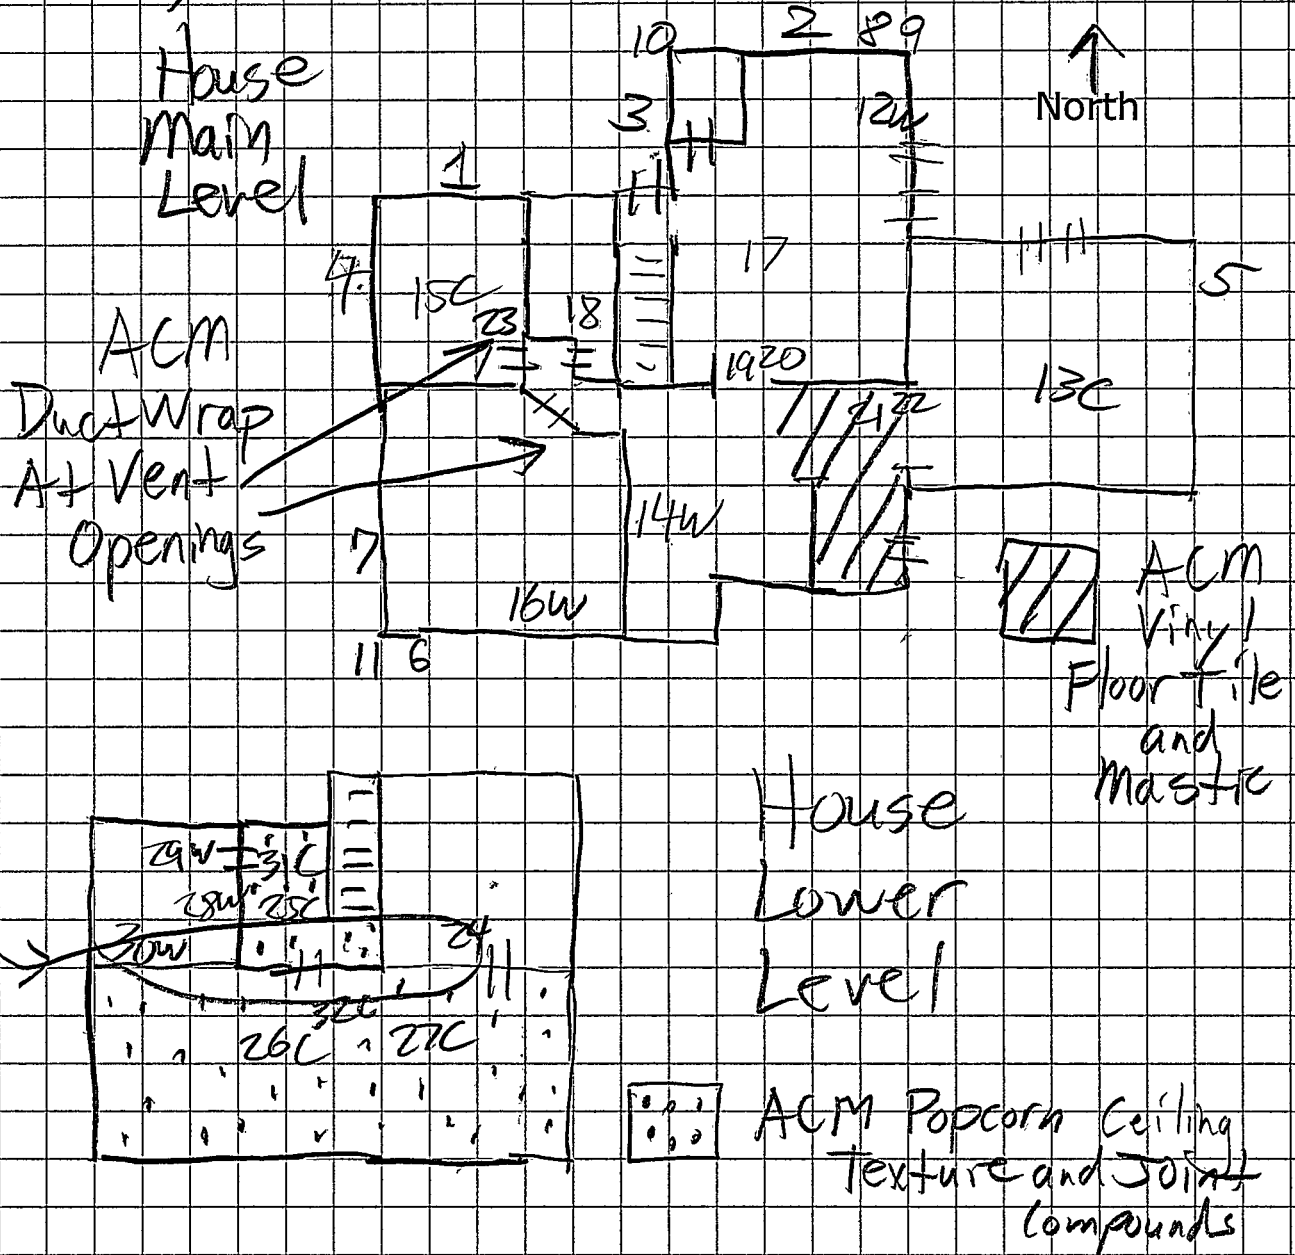 House
Main
Level
10
2
8 9
3
12W
North
1
4
15C
23
18
17
5
ACM
Duct Wrap
At Vent
Openings
19 20
21 22
13C
7
14W
16W
11 6
ACM
Vinyl
Floor Tile
and
Mastic
House
Lower
Level
29W
31C
28W
25C
30W
24
32C
26C
27C
ACM Popcorn Ceiling
Texture and Joint
Compounds